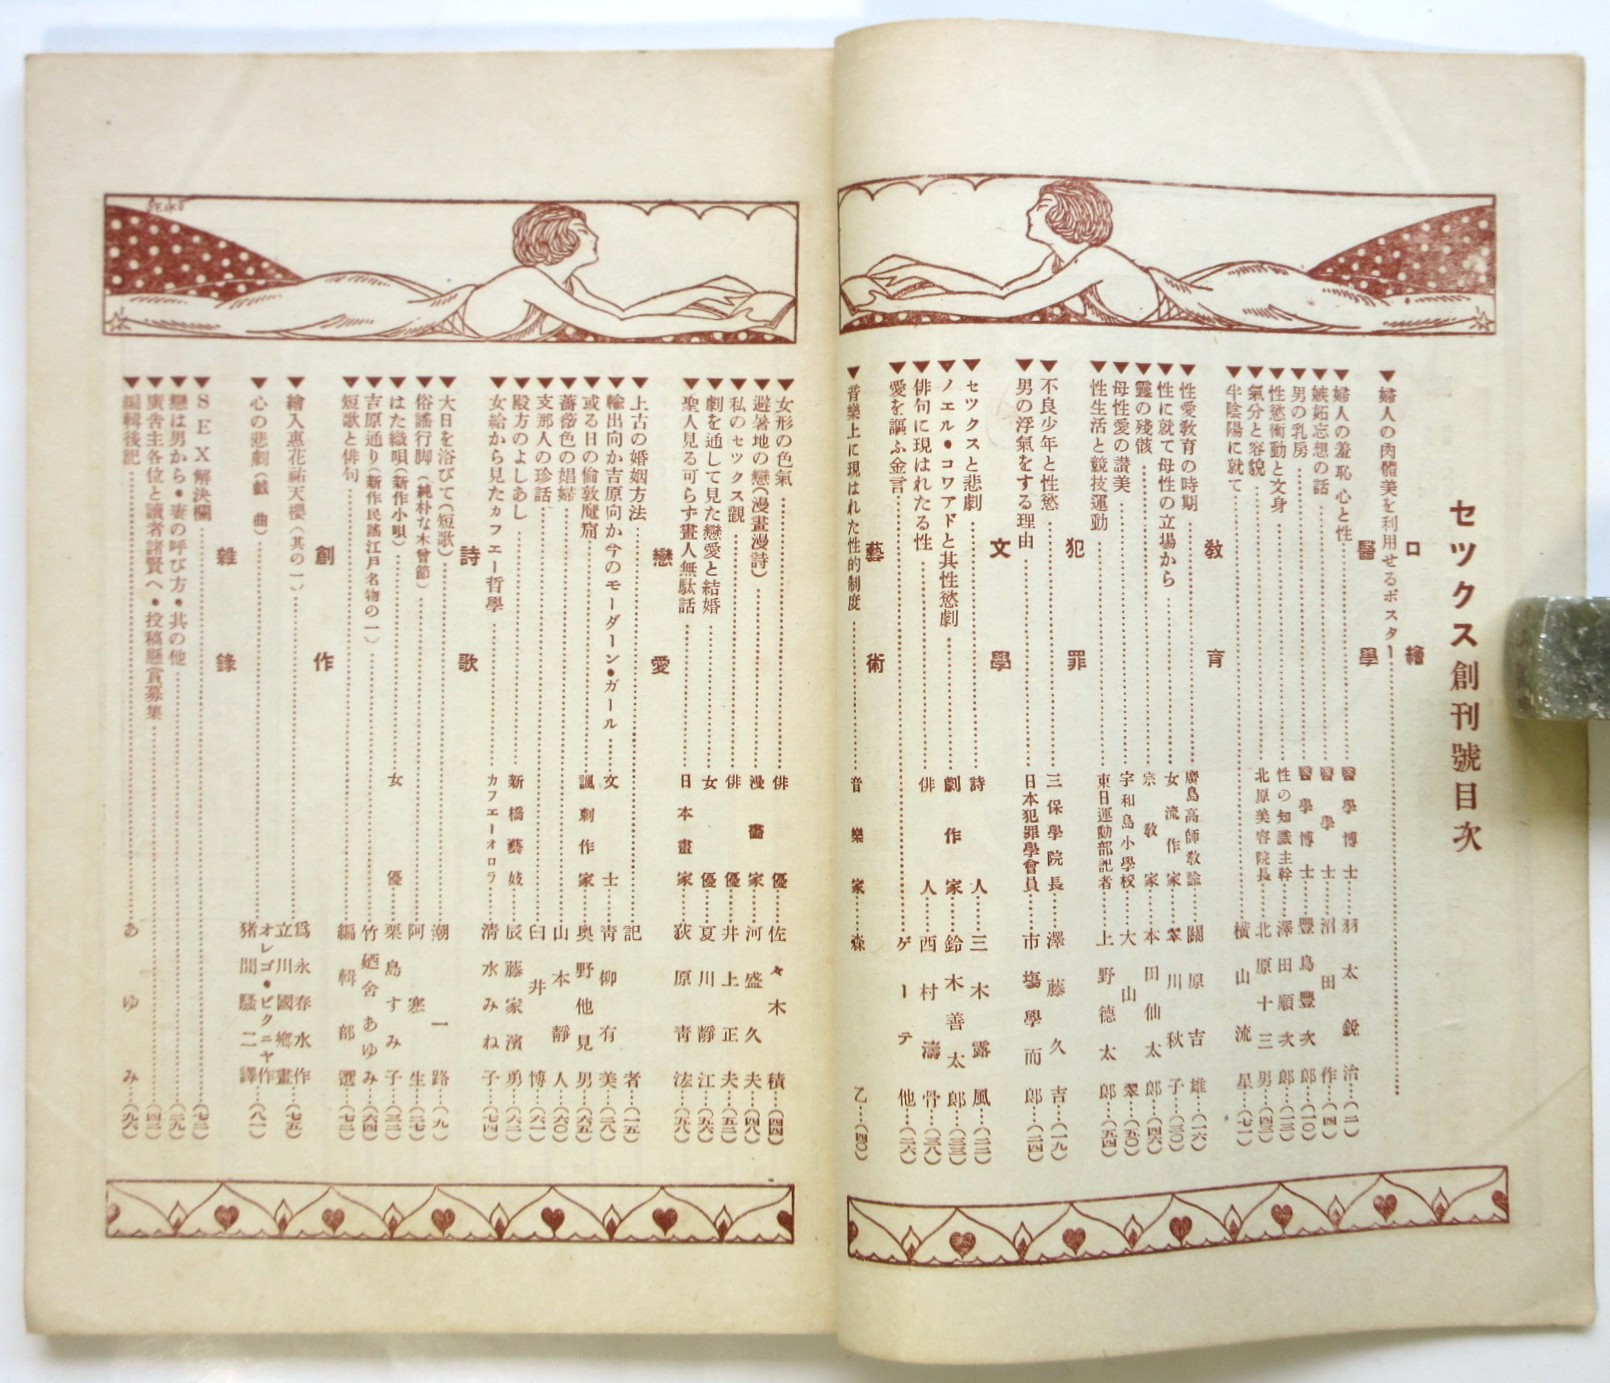 セツクス創刊號目次
口繪
▼婦人の肉體美を利用せるポスター
醫學
▼婦人の羞恥心と性 醫學博士 羽太鋭治(一)
▼嫉妬忘想の話 醫學士 沼田 作(四)
▼男の乳房 醫學博士 豐島豐次(一〇)
▼性慾衝動と文身 性の知識主幹 澤田順次郎(一三)
▼氣分と容貌 北原美容院長 北原十三男(四三)
▼半陰陽に就て 横山流星(七一)
敎育
▼性愛敎育の時期 廣島高師敎諭 關原吉雄(一六)
▼性に就て母性の立場から 女流作家 翠川秋子(三〇)
▼靈の殘骸 宗敎家 本田仙太郎(四六)
▼母性愛の讃美 宇和島小學校 大山 翠(五〇)
▼性生活と競技運動 東日運動部記者 上野德太郎(五四)
犯罪
▼不良少年と性慾 三保學院長 澤藤久吉(一九)
▼男の浮氣をする理由 日本犯罪學會員 市塲學而郎(二四)
文學
▼セツクスと悲劇 詩人 三木露風(二二)
▼ノエル・コワアドと其性慾劇 劇作家 鈴木善太郎(三三)
▼俳句に現はれたる性 俳人 西村濤骨(三八)
▼愛を謳ふ金言 ゲーテ他(二六)
藝術
▼音樂上に現はれた性的制度 音樂家 森 乙(四〇)
▼女形の色氣 俳優 佐々木積(四四)
▼避暑地の戀(漫畫漫詩) 漫畫家 河盛久夫(四八)
▼私のセックス觀 俳優 井上正夫(五二)
▼劇を通して見た戀愛と結婚 女優 夏川靜江(五六)
▼聖人見る可らず畫人無駄話 日本畫家 荻原靑法(五八)
戀愛
▼上古の婚姻方法 記者(一五)
▼輸出向か吉原向か今のモーダーン・ガール 文士 靑柳有美(二八)
▼或る日の倫敦魔窟 諷刺作家 奥野他見男(六五)
▼薔薇色の娼婦 山本靜人(六〇)
▼支那人の珍話 臼井 博(六一)
▼殿方のよしあし 新橋藝妓 辰藤家濱勇(六二)
▼女給から見たカフエー哲學 カフエーオロラ 淸水みね子(七四)
詩歌
▼大日を浴びて(短歌) 潮 一路(九)
▼俗謠行脚(純朴な木曾節) 阿寒生(二七)
▼はた織唄(新作小唄) 女優 栗島すみ子(三二)
▼吉原通り(新作民謠江戸名物の一) 竹廼舍あゆみ(六四)
▼短歌と俳句 編輯部選(七三)
創作
▼繪入惠花祐天櫻(其の一) 爲永春水作 立川國鄕畫(七五)
▼心の悲劇(戯曲) オレゴ・ピクニヤ作 猪間驥二譯(八一)
雜錄
▼SEX解決欄(七三)
▼戀は男から・妻の呼び方・其の他(二九)
▼廣吿主各位と讀者諸賢へ・投稿懸賞募集(四二)
▼編輯後記 あゆみ(九六)